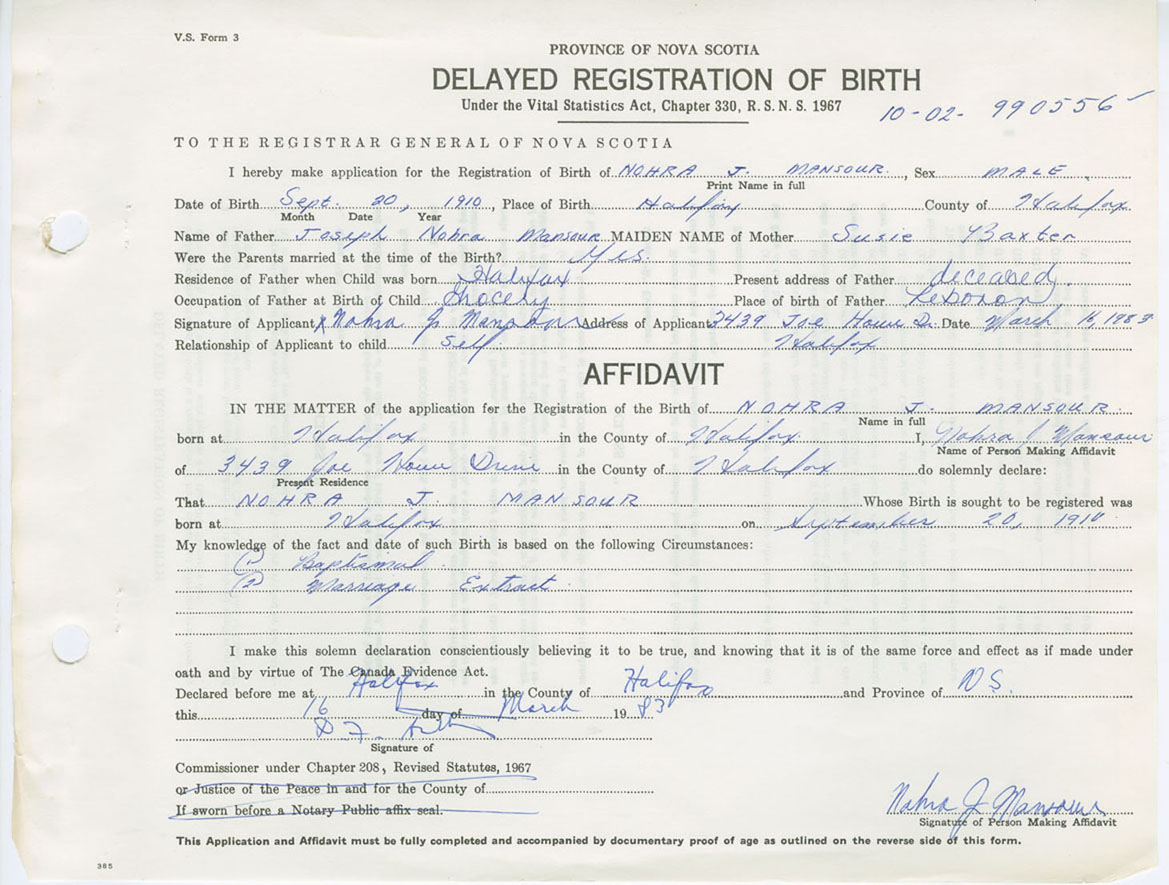 V.S. Form 3
PROVINCE OF NOVA SCOTIA
DELAYED REGISTRATION OF BIRTH
Under the Vital Statistics Act, Chapter 330, R.S.N.S. 1967
10-02- 990556
TO THE REGISTRAR GENERAL OF NOVA SCOTIA
I hereby make application for the Registration of Birth of NOHRA J. MANSOUR, Sex MALE
Print Name in full
Date of Birth Sept. 20, 1910, Place of Birth Halifax County of Halifax
Month Date Year
Name of Father Joseph Nohra Mansour MAIDEN NAME of Mother Susie Baxter
Were the Parents married at the time of the Birth? Yes.
Residence of Father when Child was born Halifax Present address of Father deceased.
Occupation of Father at Birth of Child Grocery Place of birth of Father Lebonon
Signature of Applicant X Nohra J Mansour Address of Applicant 3439 Joe Howe Dr. Date March 16, 1983
Relationship of Applicant to child Self Halifax
AFFIDAVIT
IN THE MATTER of the application for the Registration of the Birth of NOHRA J. MANSOUR
Name in full
born at Halifax in the County of Halifax I, Nohra J Mansour
Name of Person Making Affidavit
of 3439 Joe Howe Drive in the County of Halifax do solemnly declare:
Present Residence
That NOHRA J. MANSOUR Whose Birth is sought to be registered was
born at Halifax on September 20, 1910
My knowledge of the fact and date of such Birth is based on the following Circumstances:
(1) Baptismal
(2) Marriage Extract
I make this solemn declaration conscientiously believing it to be true, and knowing that it is of the same force and effect as if made under
oath and by virtue of The Canada Evidence Act.
Declared before me at Halifax in the County of Halifax and Province of N.S.
this 16 day of March 1983
D.F.
Signature of
Commissioner under Chapter 208, Revised Statutes, 1967
or Justice of the Peace in and for the County of
If sworn before a Notary Public affix seal.
Nohra J Mansour
Signature of Person Making Affidavit
This Application and Affidavit must be fully completed and accompanied by documentary proof of age as outlined on the reverse side of this form.
385